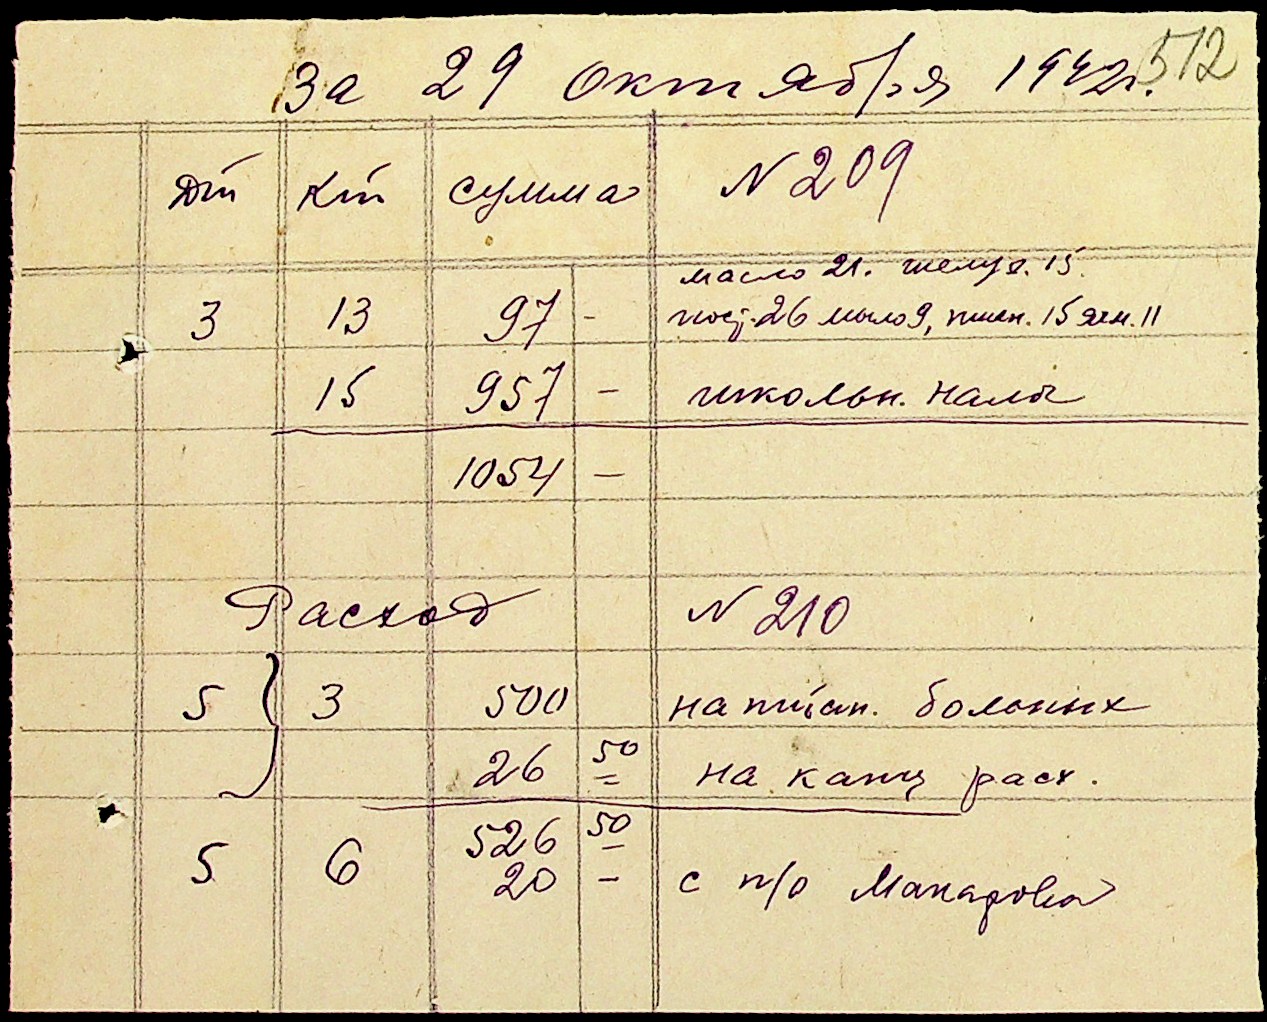 512
За 29 октября 1942г.
Дт Кт сумма N 209
масло 21. желуд. 15.
3 13 97 - пос. 26 мыло 9, пшен. 15 ячм. 11
15 957 - школьн. нало
1054 -
Расход N 210
5 } 3 500 на питан. больных
26 50 на канц расх.
526 50
5 6 20 - с п/о Макарова